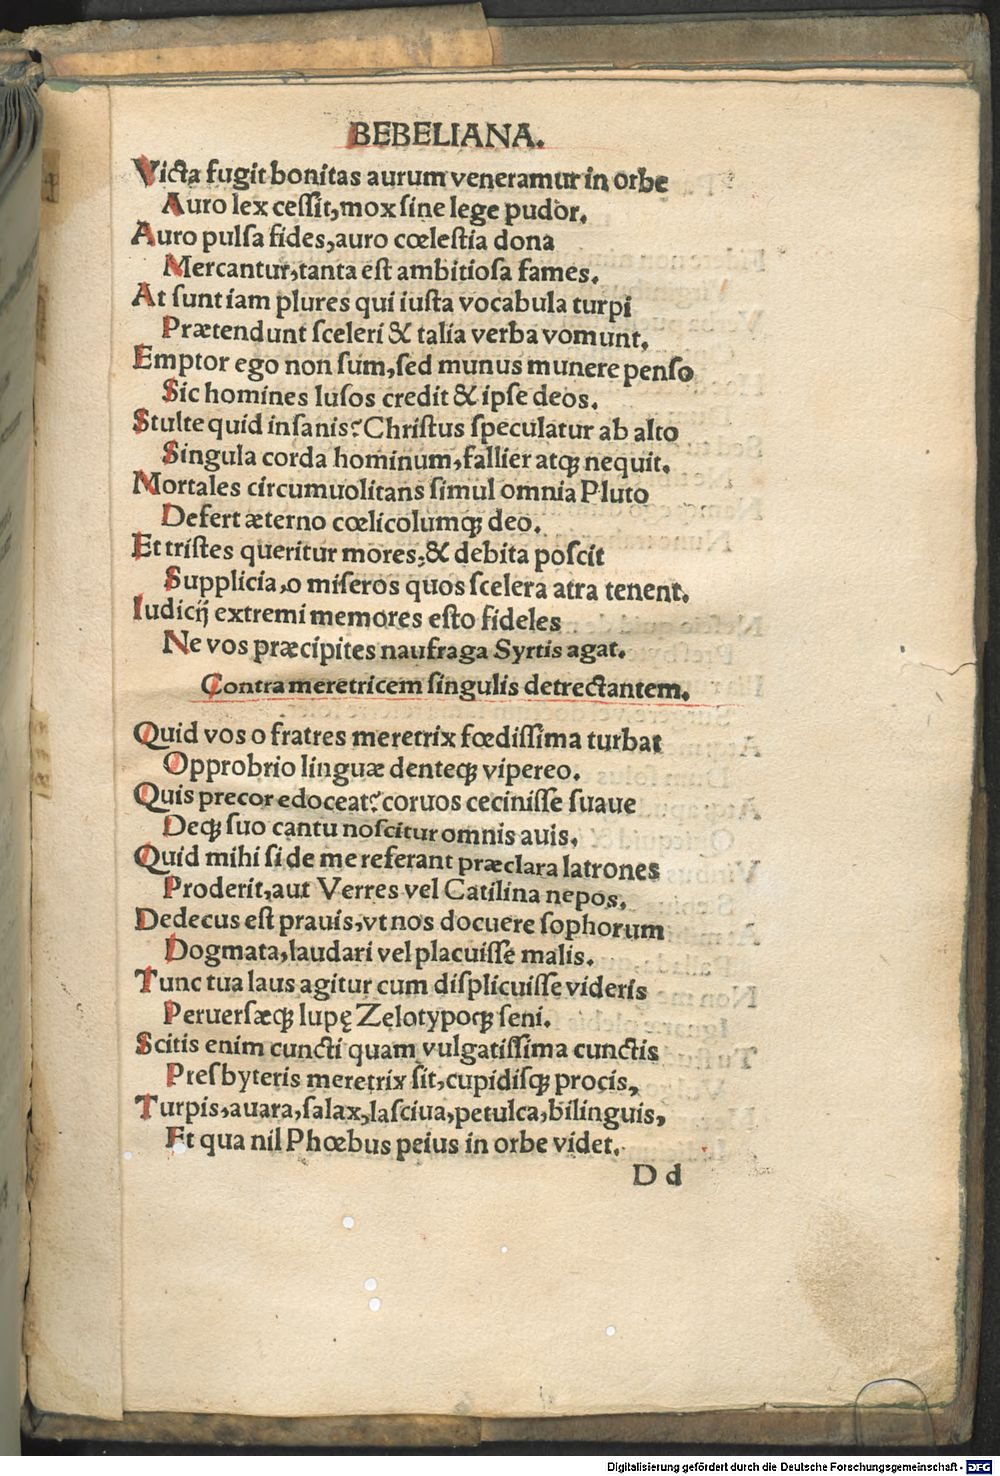 BEBELIANA.
Victa fugit bonitas aurum veneramur in orbe
Auro lex ceſſit, mox ſine lege pudor.
Auro pulſa fides, auro cœleſtia dona
Mercantur, tanta eſt ambitioſa fames.
At ſunt iam plures qui iuſta vocabula turpi
Prætendunt ſceleri & talia verba vomunt.
Emptor ego non ſum, ſed munus munere penſo
Sic homines luſos credit & ipſe deos.
Stulte quid inſanis? Chriſtus ſpeculatur ab alto
Singula corda hominum, fallier atqꝫ nequit.
Mortales circumuolitans ſimul omnia Pluto
Defert æterno cœlicolumqꝫ deo.
Et triſtes queritur mores, & debita poſcit
Supplicia, o miſeros quos ſcelera atra tenent.
Iudicij extremi memores eſto fideles
Ne vos præcipites naufraga Syrtis agat.
Contra meretricem ſingulis detrectantem.
Quid vos o fratres meretrix fœdiſſima turbat
Opprobrio linguæ denteqꝫ vipereo.
Quis precor edoceat? coruos ceciniſſe ſuaue
Deqꝫ ſuo cantu noſcitur omnis auis.
Quid mihi ſi de me referant præclara latrones
Proderit, aut Verres vel Catilina nepos.
Dedecus eſt prauis, vt nos docuere ſophorum
Dogmata, laudari vel placuiſſe malis.
Tunc tua laus agitur cum diſplicuiſſe videris
Peruerſæqꝫ lupę Zelotypoqꝫ ſeni.
Scitis enim cuncti quam vulgatiſſima cunctis
Preſbyteris meretrix ſit, cupidiſqꝫ procis,
Turpis, auara, ſalax, laſciua, petulca, bilinguis,
Et qua nil Phœbus peius in orbe videt.
D d
Digitalisierung gefördert durch die Deutsche Forschungsgemeinschaft - DFG